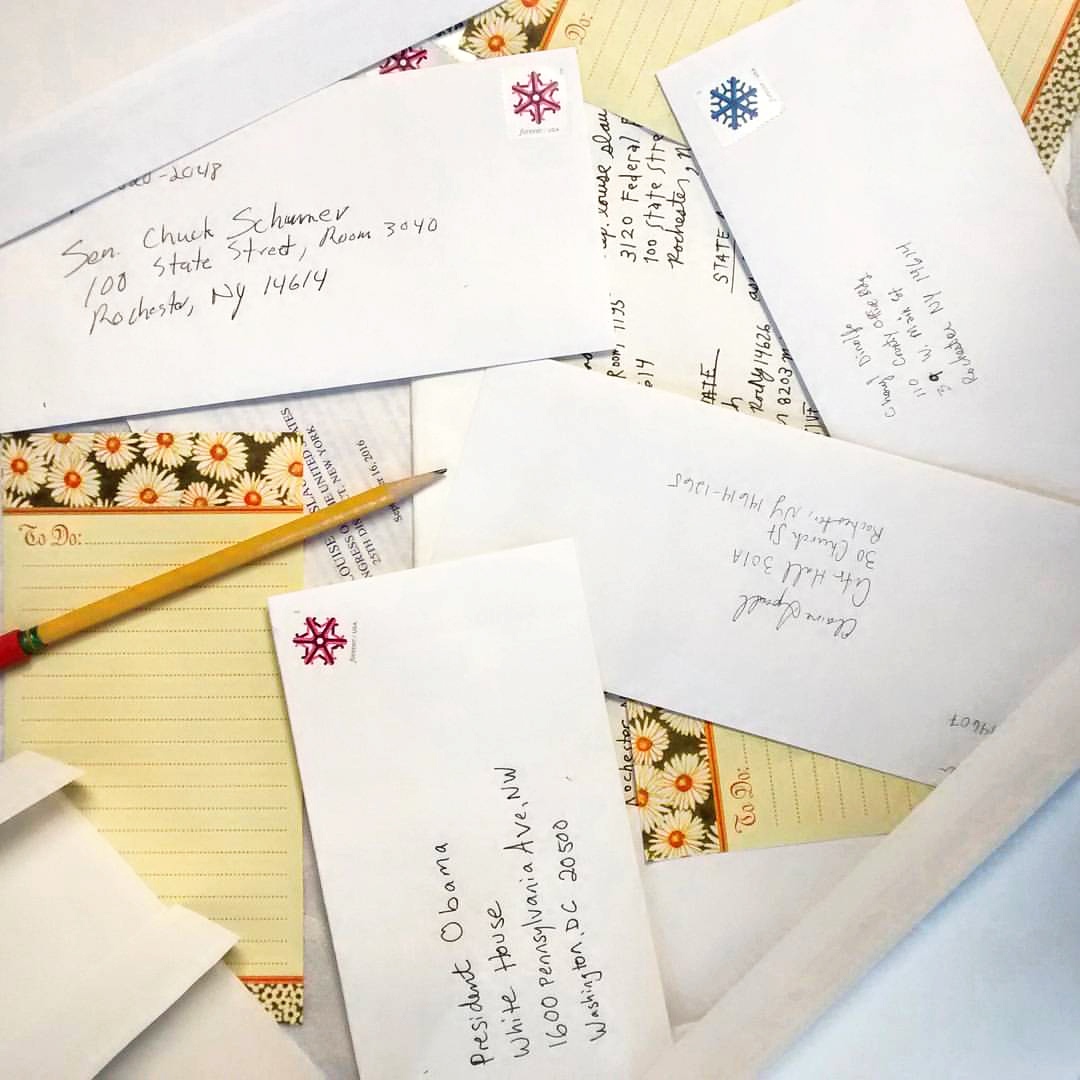 Do:
forever / USA
-2048
Sen. Chuck Schumer
100 State Street, Room 3040
Rochester, NY 14614
3120 Federal
100 State Stre
Rochester, N
STATE
Room 1195
614
Rochy 14626
8203
Cheryl Dinolfo
110 County Office Bldg
39 W. Main St
Rochester NY 14614
To Do:
LOUISE
NGRESS O
TE UNITED STATES
25TH DIS
CT, NEW YORK
16, 2016
Claire
City Hall 301A
30 Church St
Rochester, NY 14614-1265
14607
forever / USA
President Obama
White House
1600 Pennsylvania Ave, NW
Washington, DC 20500
Rochester
To Do: